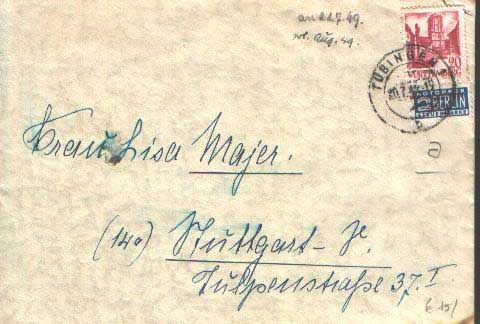 an 21.7.49.
rel. Aug. 49.
20
WÜRTTEMBERG
TÜBINGEN
20.7.49
b
NOTOPFER
2 BERLIN
STEUERMARKE
Frau Lisa Majer.
(14a) Stuttgart-W.
Tulpenstraße 37. I
€ 15/